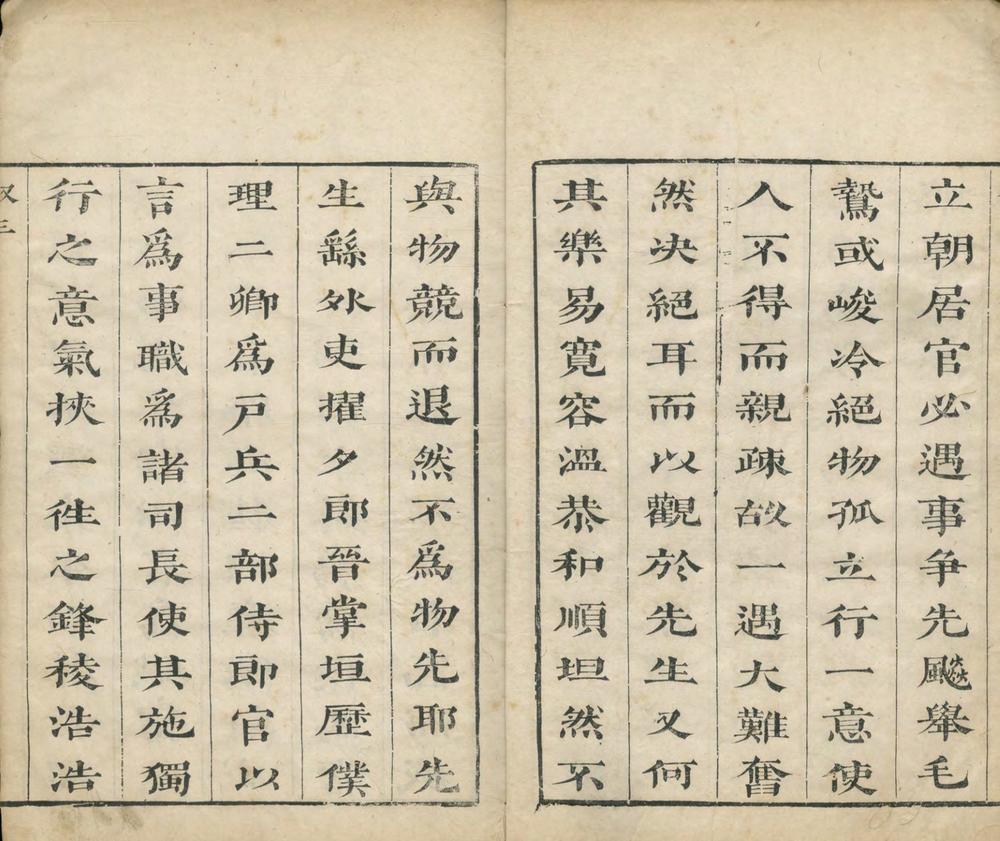 立朝居官必遇事争先飈舉毛
鷙或峻冷絕物孤立行一意使
人不得而親疎故一遇大難奮
然决絕耳而以觀於先生又何
其樂易寬容溫恭和順坦然不
與物競而退然不爲物先耶先
生繇外吏擢夕郎晉掌垣歷僕
理二卿爲戸兵二部侍郎官以
言爲事職爲諸司長使其施獨
行之意氣挾一徃之鋒稜浩浩